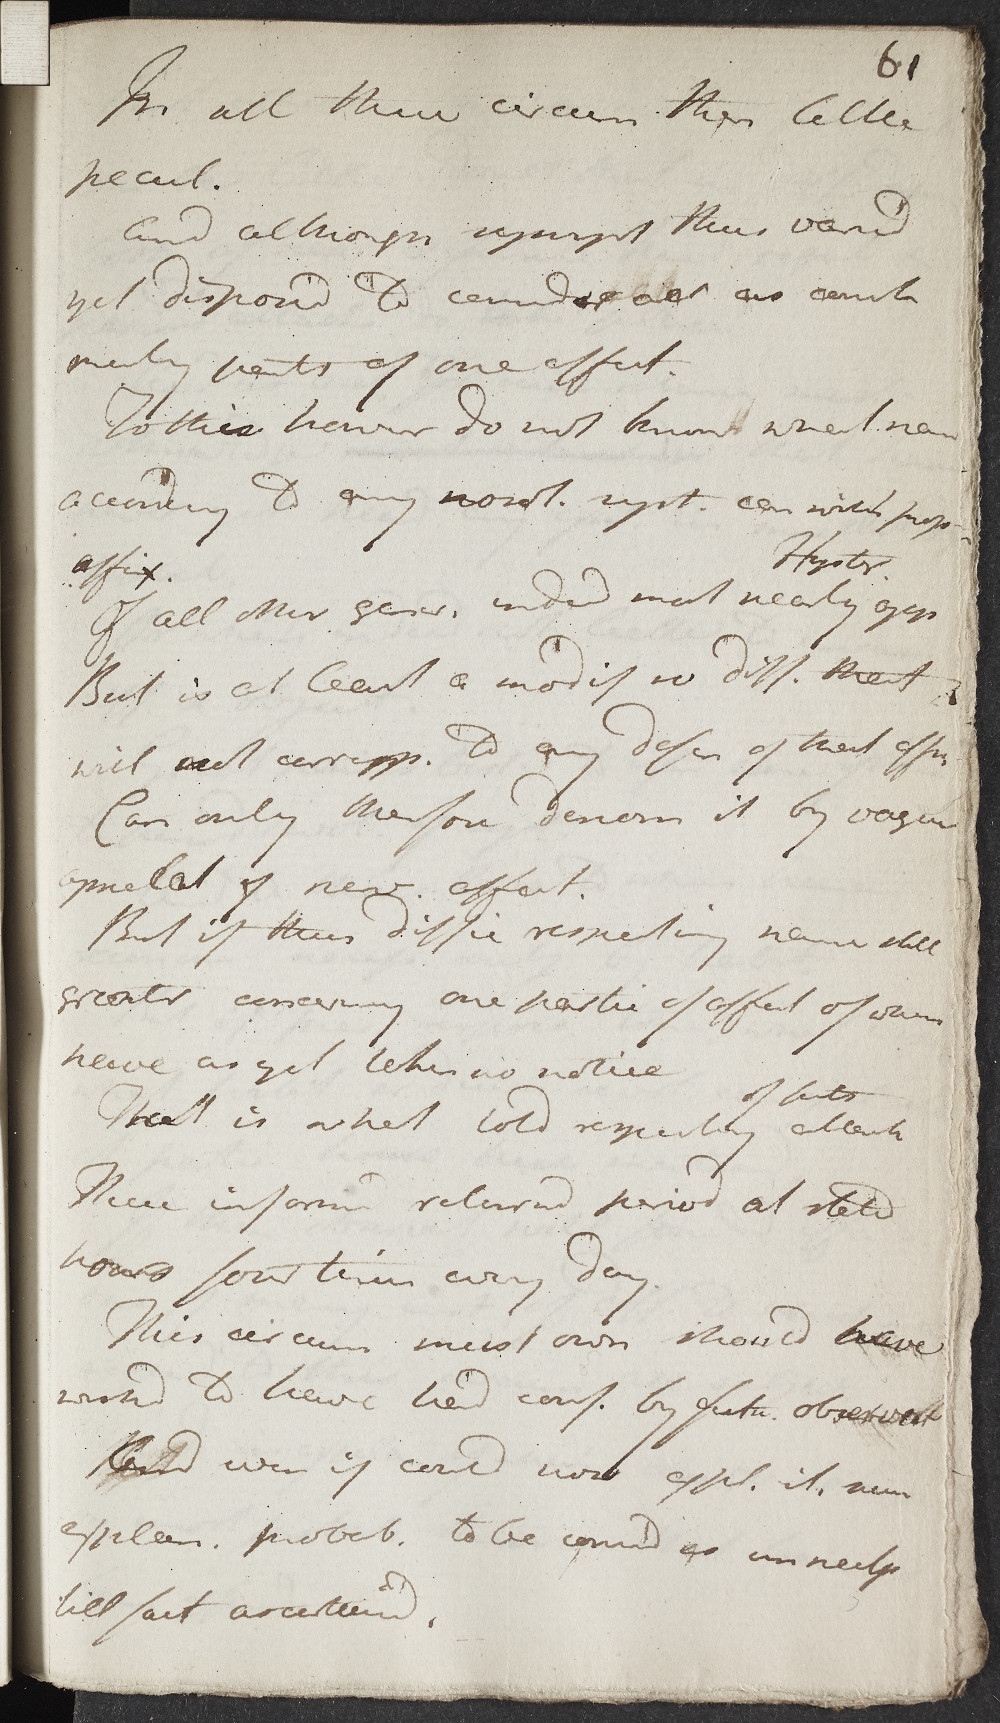 61
In all these circum then little
pecul.
And although sympt thus varid
yet disposd to consider all as
merly parts of one affect.
To this howevr do not know what nam
according to any nosol. syst. can with prop-
affix.
Of all other gener. indeed most nearly app Hyster.
But is at least a modif so diff. that
will not corresp. to any defin of that affn
Can only therfore denom it by vague
appellat of nerv. affect.
But if thus diffic respecting name still
greatr concerning one partic of affect of whm
have as yet taken no notice
That is what told respecting attack of fits
These informd returnd period at stated
hours four times evry day.
This circum must own should have
wishd to have had conf. by futu. observat
And even if could now expl. it. such
explan. probab. to be considd as unnecess
till fact ascertaind.